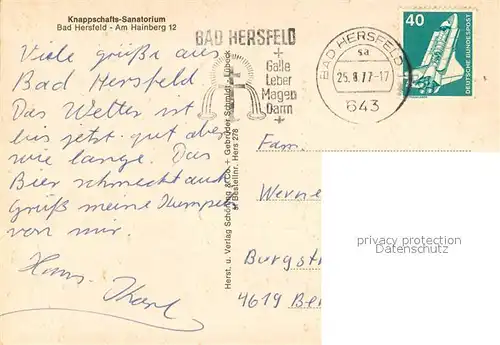 Knappschafts-Sanatorium
Bad Hersfeld - Am Hainberg 12
Viele Grüße aus
Bad Hersfeld
Das Wetter ist
bis jetzt gut aber
wie lange. Das
Bier schmeckt auch
Grüß meine Kumpels
von mir.
Hans Karl
Herst. u. Verlag Schöning & Co. + Gebrüder Schmidt - Lübeck
Bestellnr. Hers 278
BAD HERSFELD
Galle
Leber
Magen
Darm
BAD HERSFELD
sa
25.8.77-17
643
40
DEUTSCHE BUNDESPOST
Fam.
Werne
Burgstr
4619 Be
privacy protection
Datenschutz